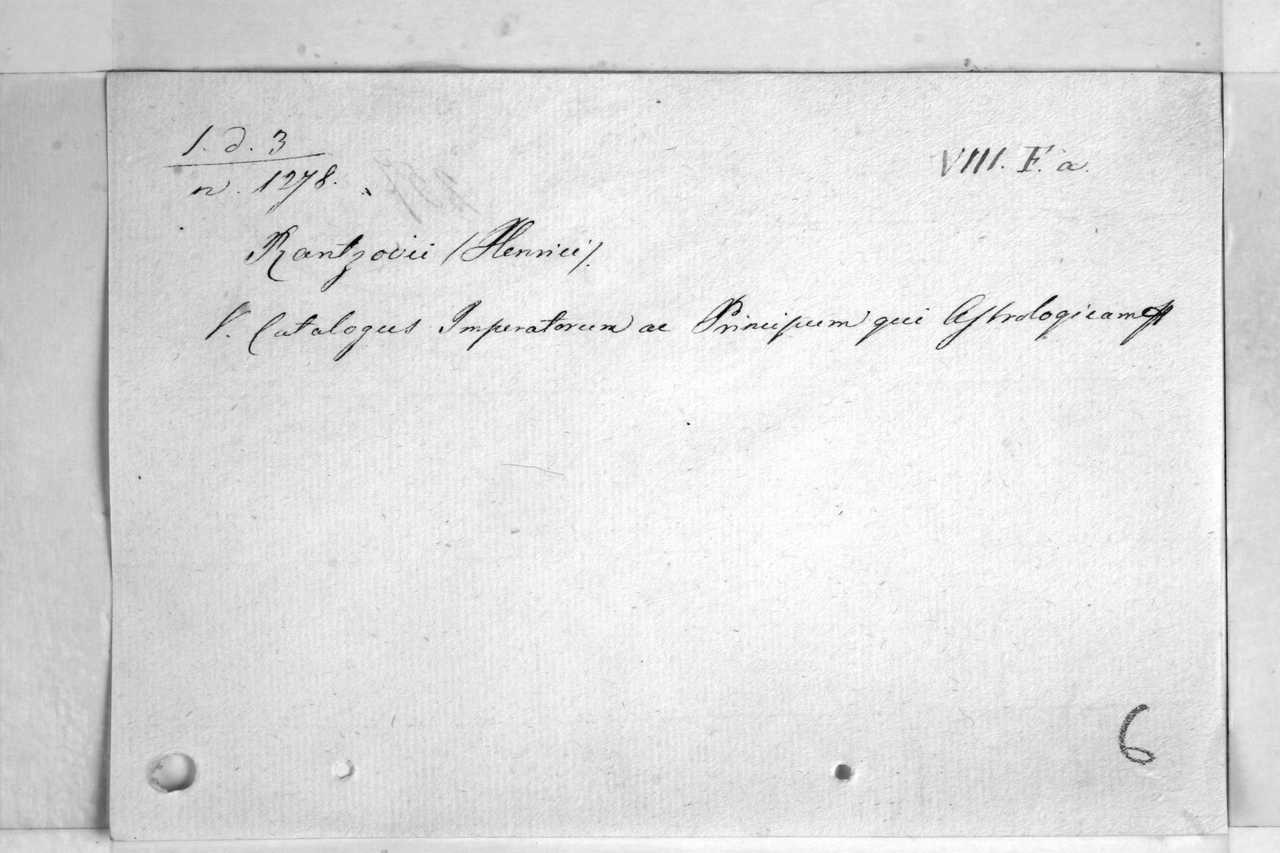 1. d. 3
n. 1278.
VIII. F. a.
Rantzovii /Henrici/.
V. Catalogus Imperatorum ac Principum qui Astrologicam
6